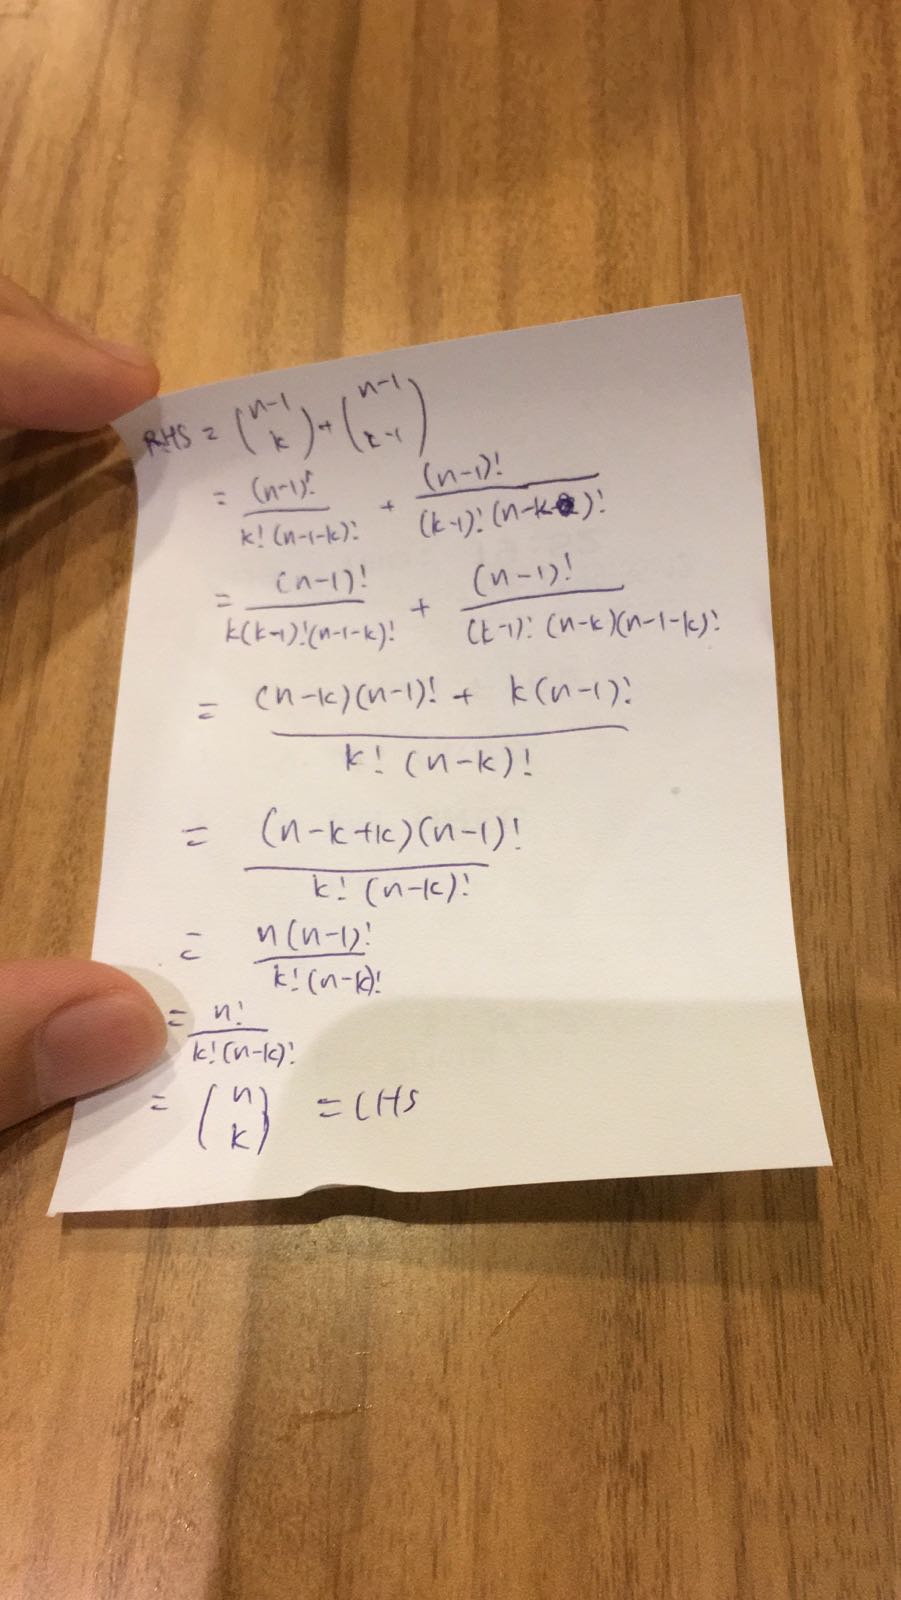 RHS = (n-1 k) + (n-1 k-1)
= (n-1)! / k! (n-1-k)! + (n-1)! / (k-1)! (n-k)!
= (n-1)! / k(k-1)! (n-1-k)! + (n-1)! / (k-1)! (n-k)(n-1-k)!
= (n-k)(n-1)! + k(n-1)! / k! (n-k)!
= (n-k+k)(n-1)! / k! (n-k)!
= n(n-1)! / k! (n-k)!
= n! / k! (n-k)!
= (n k) = LHS